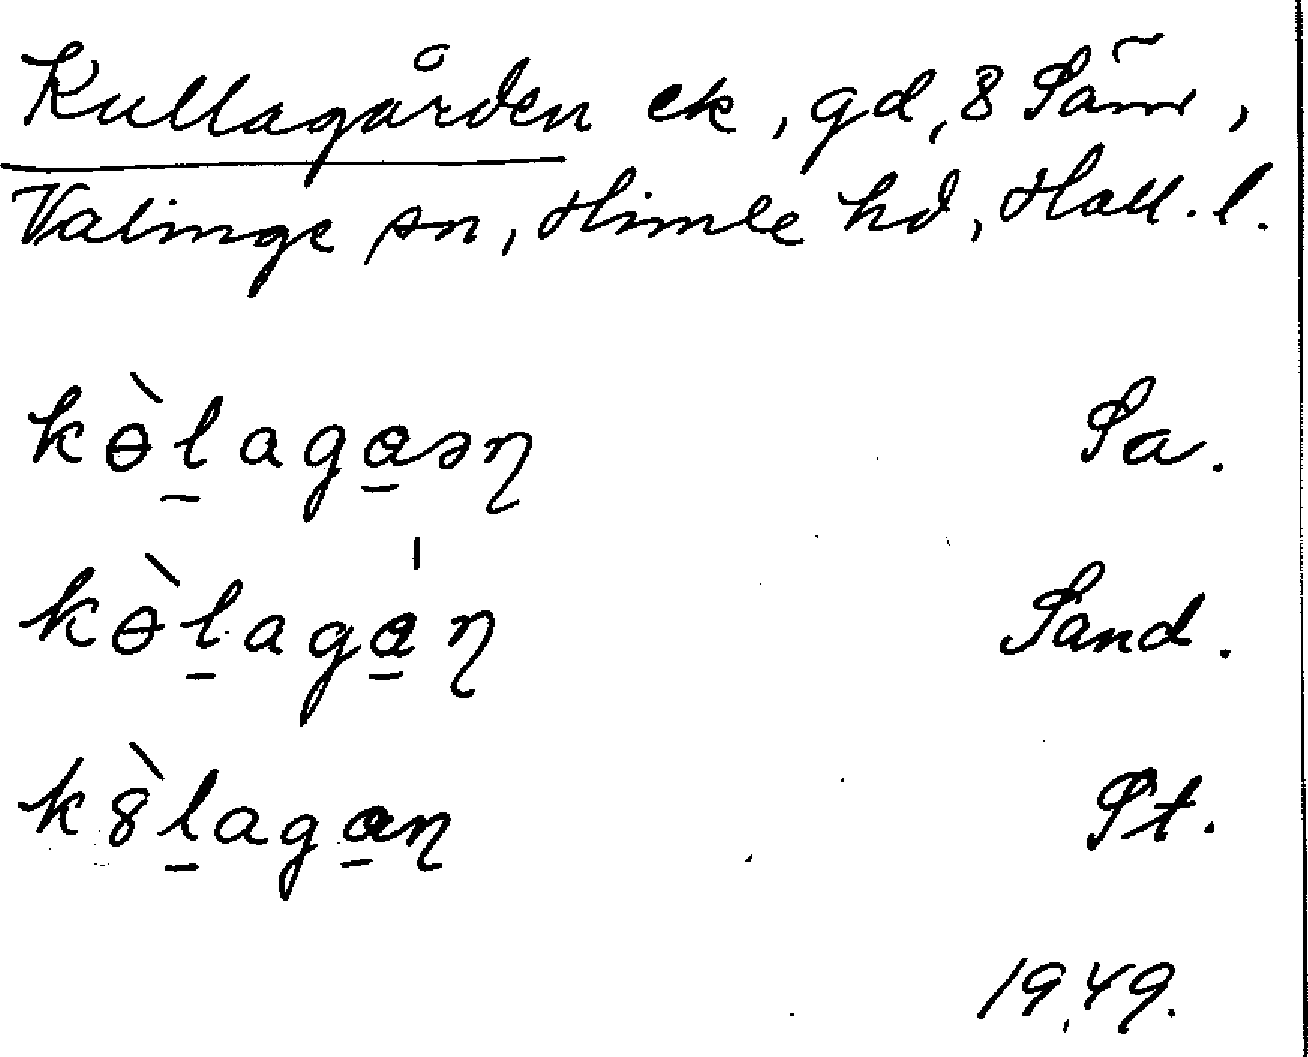 Kullagården ek, gd, 8 Säm,
Valinge sn, Himle hd, Hall. l.
kɵ̀l̠aga̠əɳ Sa.
kɵ̀l̠aga̠̍ɳ Sand.
k8̀l̠aga̠ɳ St.
1949.